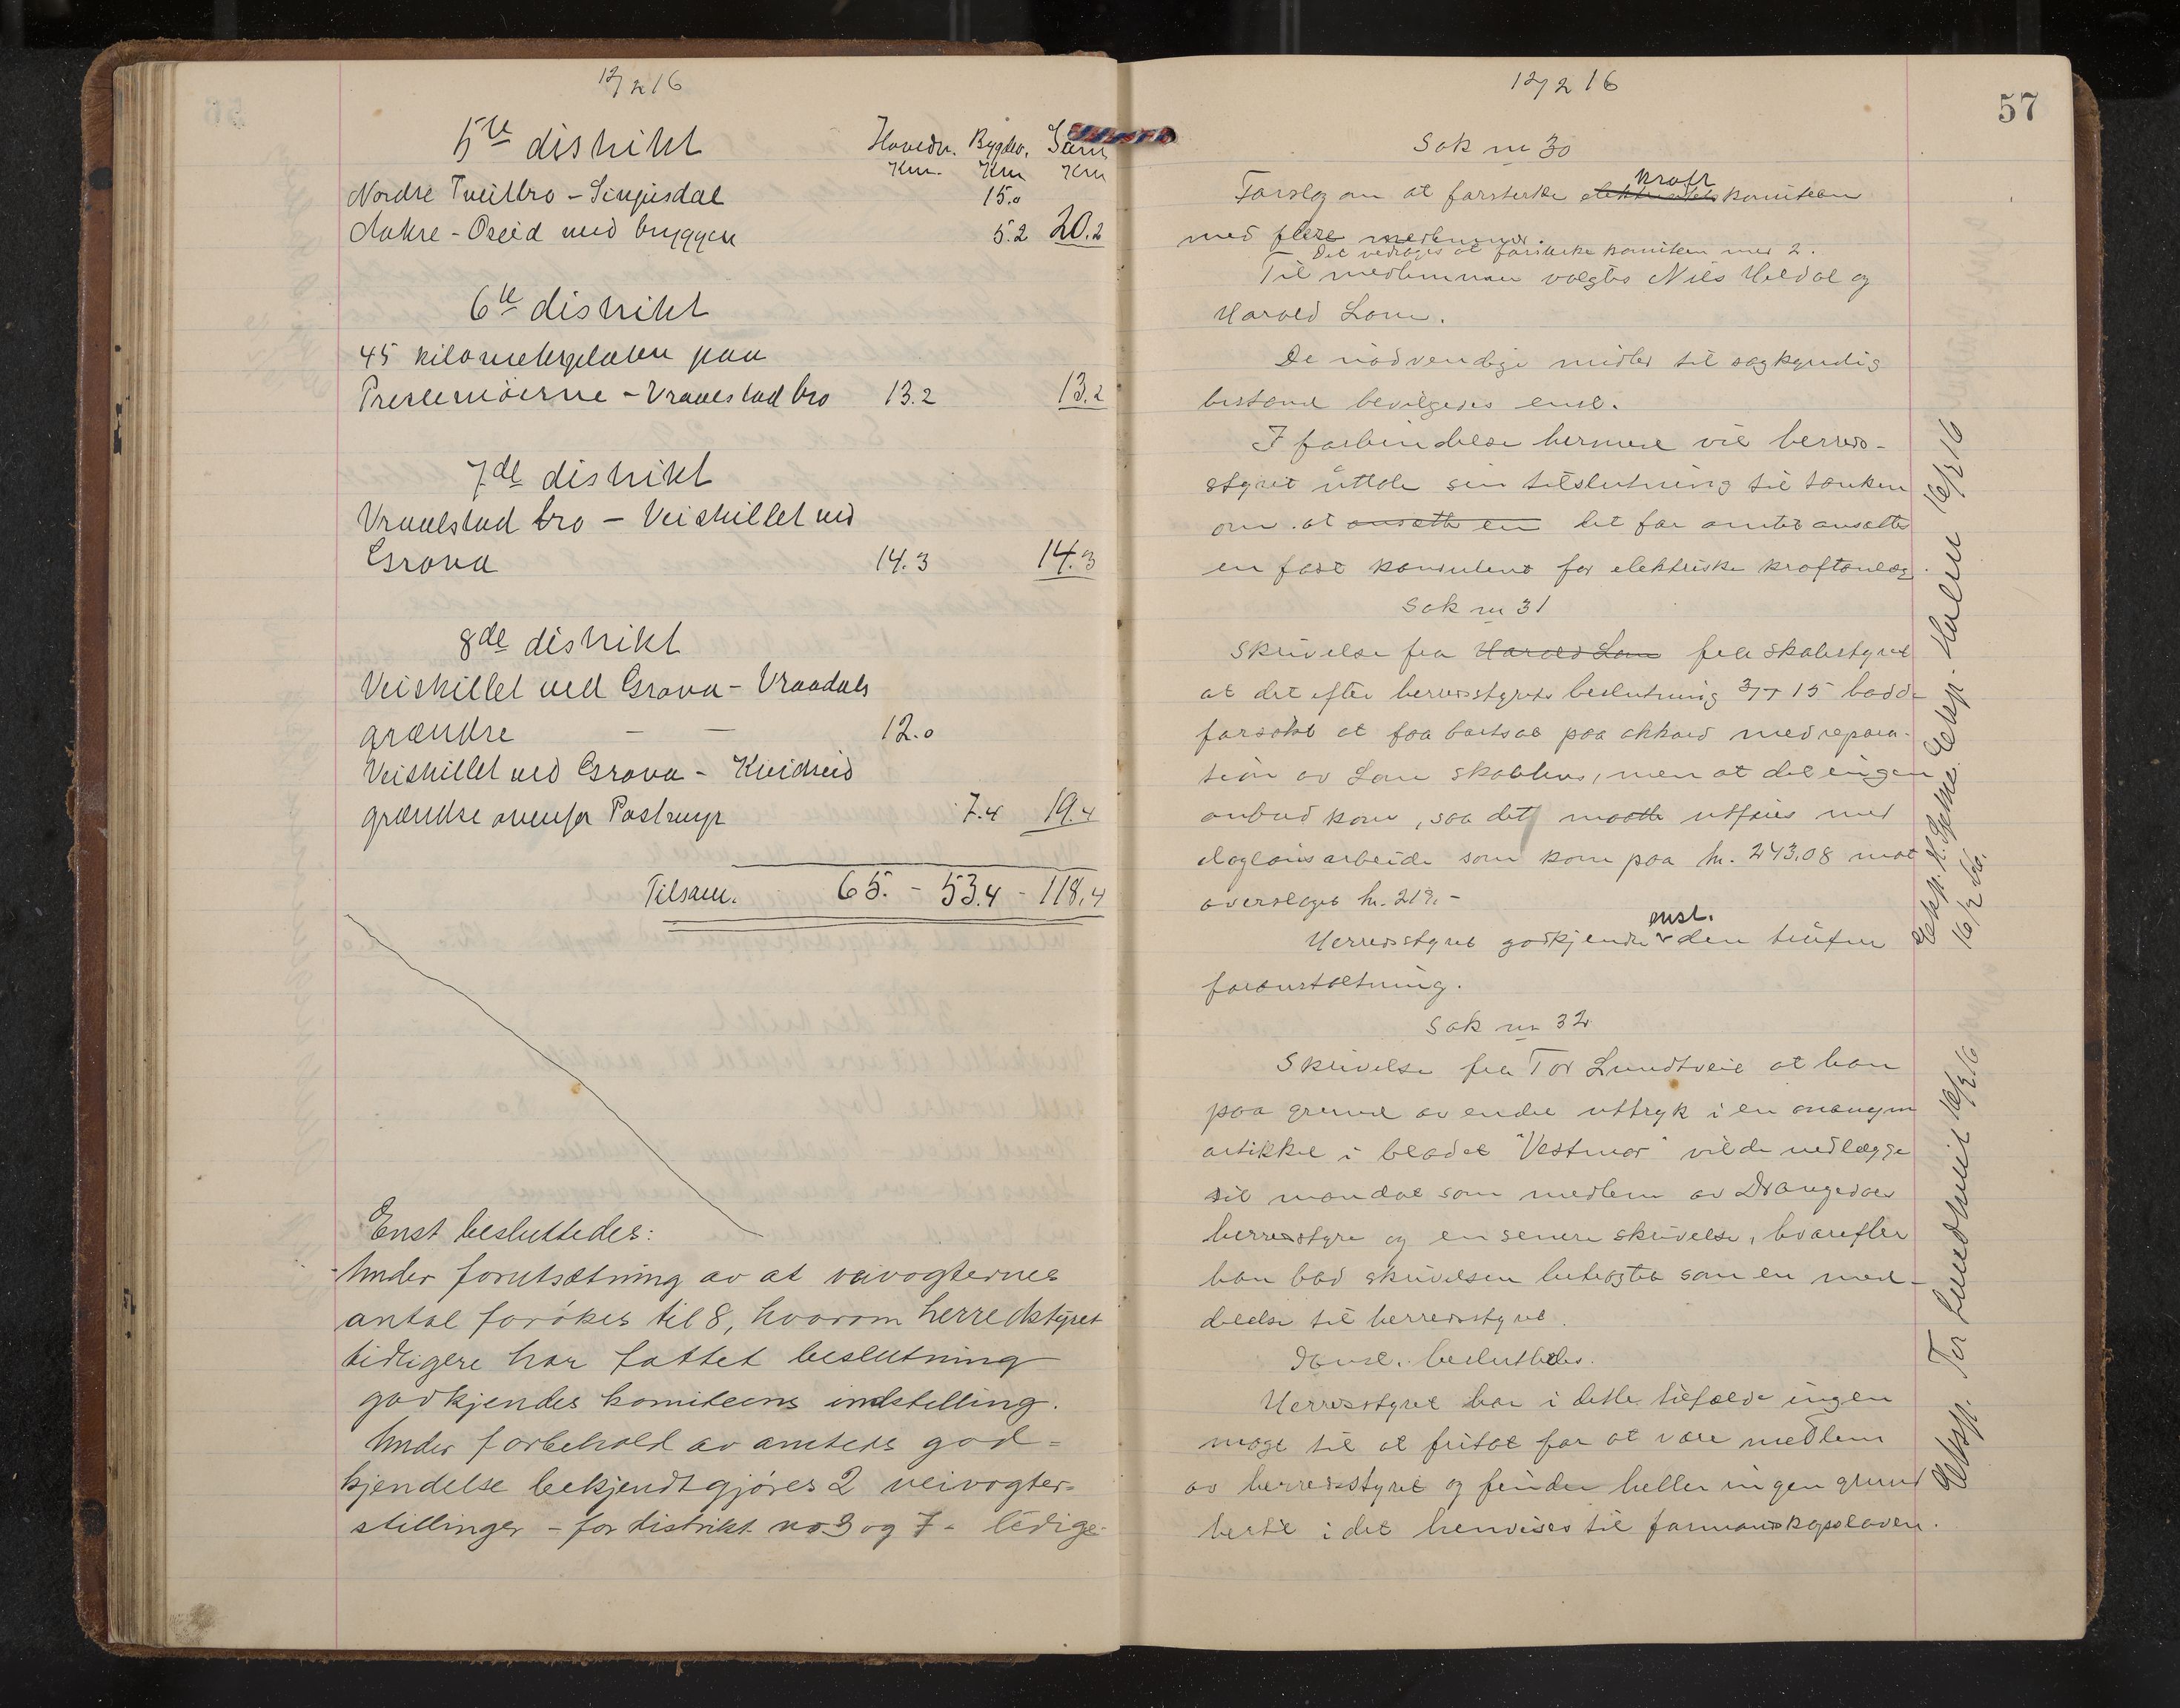 12/2 16
5te distrikt
Hovedv. Bygdev. Sum
Km. Km Km
Nordre Tveitbro - 15.0
Aakre - Oseid med bryggen 5.2 20.2
6te distrikt
45 kilometerpælen paa
- Vraalstad bro 13.2 13.2
7de distrikt
Vraalstad bro - Veiskillet ved
Grova 14.3 14.3
8de distrikt
Veiskillet ved Grova - Vraadals
grændse — — 12.0
Veiskillet ved Grova - Kviteseid
grændse ovenfor Postmyr 7.4 19.4
Tilsam. 65. - 53.4 - 118.4
Enst besluttedes:
Under forutsætning av at veivogternes
antal forökes til 8, hvorom herredstyret
tidligere har fattet beslutning
godkjendes komiteens indstilling.
Under forbehold av amtets god=
kjendelse bekjendtgjöres 2 veivogter=
stillinger - for distrikt no 3 og 7 - ledige.
12/2 16
57
Sak nr 30
kraft
Forslag om at forsterke elektricitets komiteen
med flere medlemmer.
Det vedtages at forsterke komiteen med 2.
Til medlemmer valgtes Nils Heldal og
Harald Lane.
De nödvendige midler til sagkyndig
bistand bevilgedes enst.
I forbindelse hermed vil herreds-
styret uttale sin tilslutning til tanken
om at ansætte en det for amtet ansættes
en fast konsulent for elektriske kraftanlæg.
Sak nr 31
Skrivelse fra Harald Lane fra skolestyret
at det efter herredsstyrets beslutning 15 hadde
forsökt at faa bortsat paa akkord med repara-
tion av Lane skolehus, men at det ingen
anbud kom, saa det maatte utföres med
daglönsarbeide som kom paa kr. 243.08 mot
overslaget kr. 218.-
enst.
Herredsstyret godkjendte den trufne
foranstaltning.
Sak nr 32
Skrivelse fra Tor Lundtveit at han
paa grund av endel uttryk i en anonym
artikkel i bladet "Vestmar" vilde nedlægge
sit mandat som medlem av Drangedal
herredsstyre og en senere skrivelse, hvorefter
han bad skrivelsen betragtet som en med-
delelse til herredsstyret.
enst. besluttedes.
Herredsstyret har i dette tilfælde ingen
magt til at fritat for at være medlem
av herredsstyret og finder heller ingen grund
hertil i det henvises til formandskapsloven.
Eksp. Halen 16/2 16
Eksp.
16/2 16.
Eksp. Tor Lundtveit 16/2 16